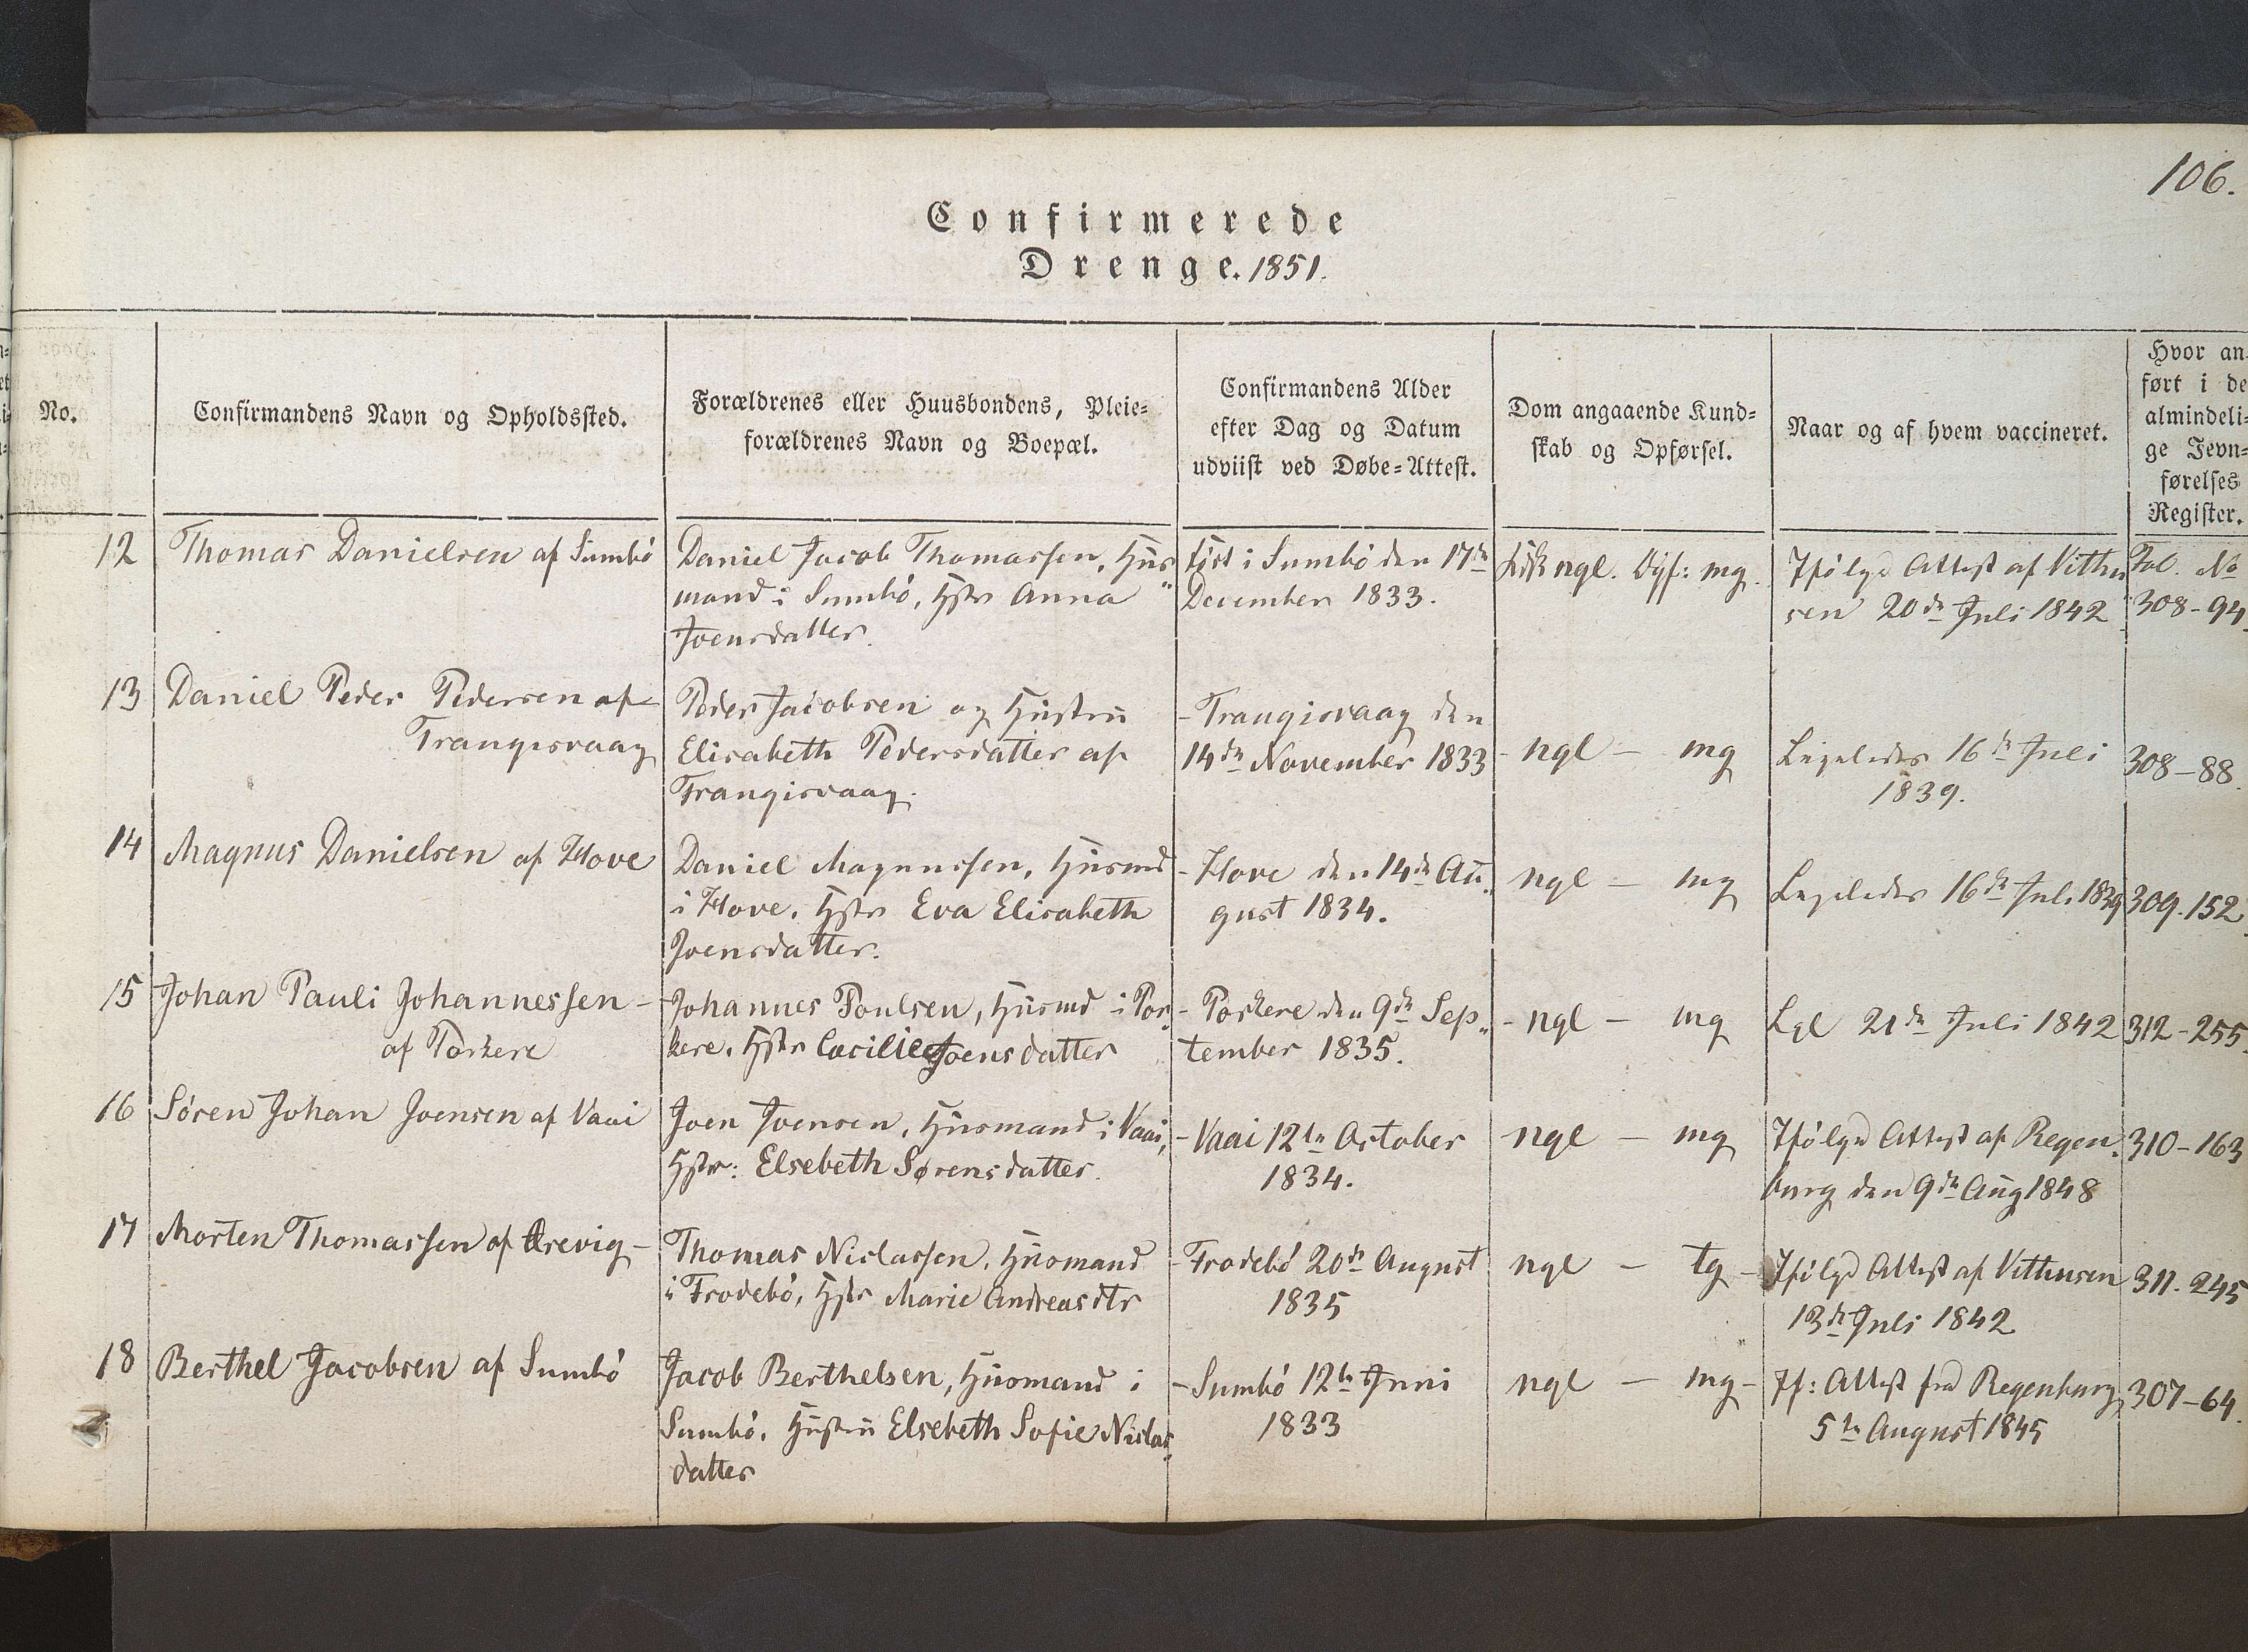 106.
Confirmerede
Drenge. 1851.
No.
Confirmandens Navn og Opholdssted.
Forældrenes eller Huusbondens, Pleie=
forældrenes Navn og Boepæl.
Confirmandens Alder
efter Dag og Datum
udviist ved Døbe=Attest.
Dom angaaende Kund=
skab og Opførsel.
Naar og af hvem vaccineret.
Hvor an-
ført i de
almindeli=
ge Jevn=
førelses
Register.
12
Thomas Danielsen af Sumbö
Daniel Jacob Thomassen, Hus„
mand i Sumbö, Hstr Anna
Joensdatter.
født i Sumbö den 17de
December 1833.
ngl. Opf: mg.
Ifölge Attest af Vithu„
sen 20de Juli 1842
Fol. No
308-94.
13
Daniel Peder Pedersen af
Trangisvaag
Peder Jacobsen og Hustru
Elisabeth Pedersdatter af
Trangisvaag.
- Trangisvaag den
14de November 1833
- ngl - mg
Ligeledes 16de Juli
1839.
308-88.
14
Magnus Danielsen af Hove
Daniel Magnussen, Husmd
i Hove, Hstr Eva Elisabeth
Joensdatter.
- Hove den 14de Au„
gust 1834.
ngl - mg
Ligeledes 16de Juli 1839
309.152.
15
Johan Pauli Johannessen -
af Porkere
Johannes Poulsen, Husmd i Por„
kere, Hstr Cæcilie Joensdatter
- Porkere den 9de Sep„
tember 1835.
- ngl - mg
Lgl 21de Juli 1842
312-255.
16
Sören Johan Joensen af Vaai
Joen Joensen, Husmand i Vaai,
Hstr: Elsebeth Sørensdatter.
- Vaai 12te October
1834.
ngl - mg
Ifölge Attest af Regen„
burg den 9de Aug 1848
310-163
17
Morten Thomassen af Qrevig -
Thomas Niclassen, Husmand
i Frodebö, Hstr Marie Andreasdtr
- Frodebö 20de August
1835
ngl - tg -
Ifölge Attest af Vithusen
13de Juli 1842
311.245
18
Berthel Jacobsen af Sumbö
Jacob Berthelsen, Husmand i
Sumbö, Hustru Elsebeth Sofie Niclas„
datter
- Sumbö 12te Juni
1833
ngl - mg -
If: Attest fra Regenburg
5te August 1845
307-64.